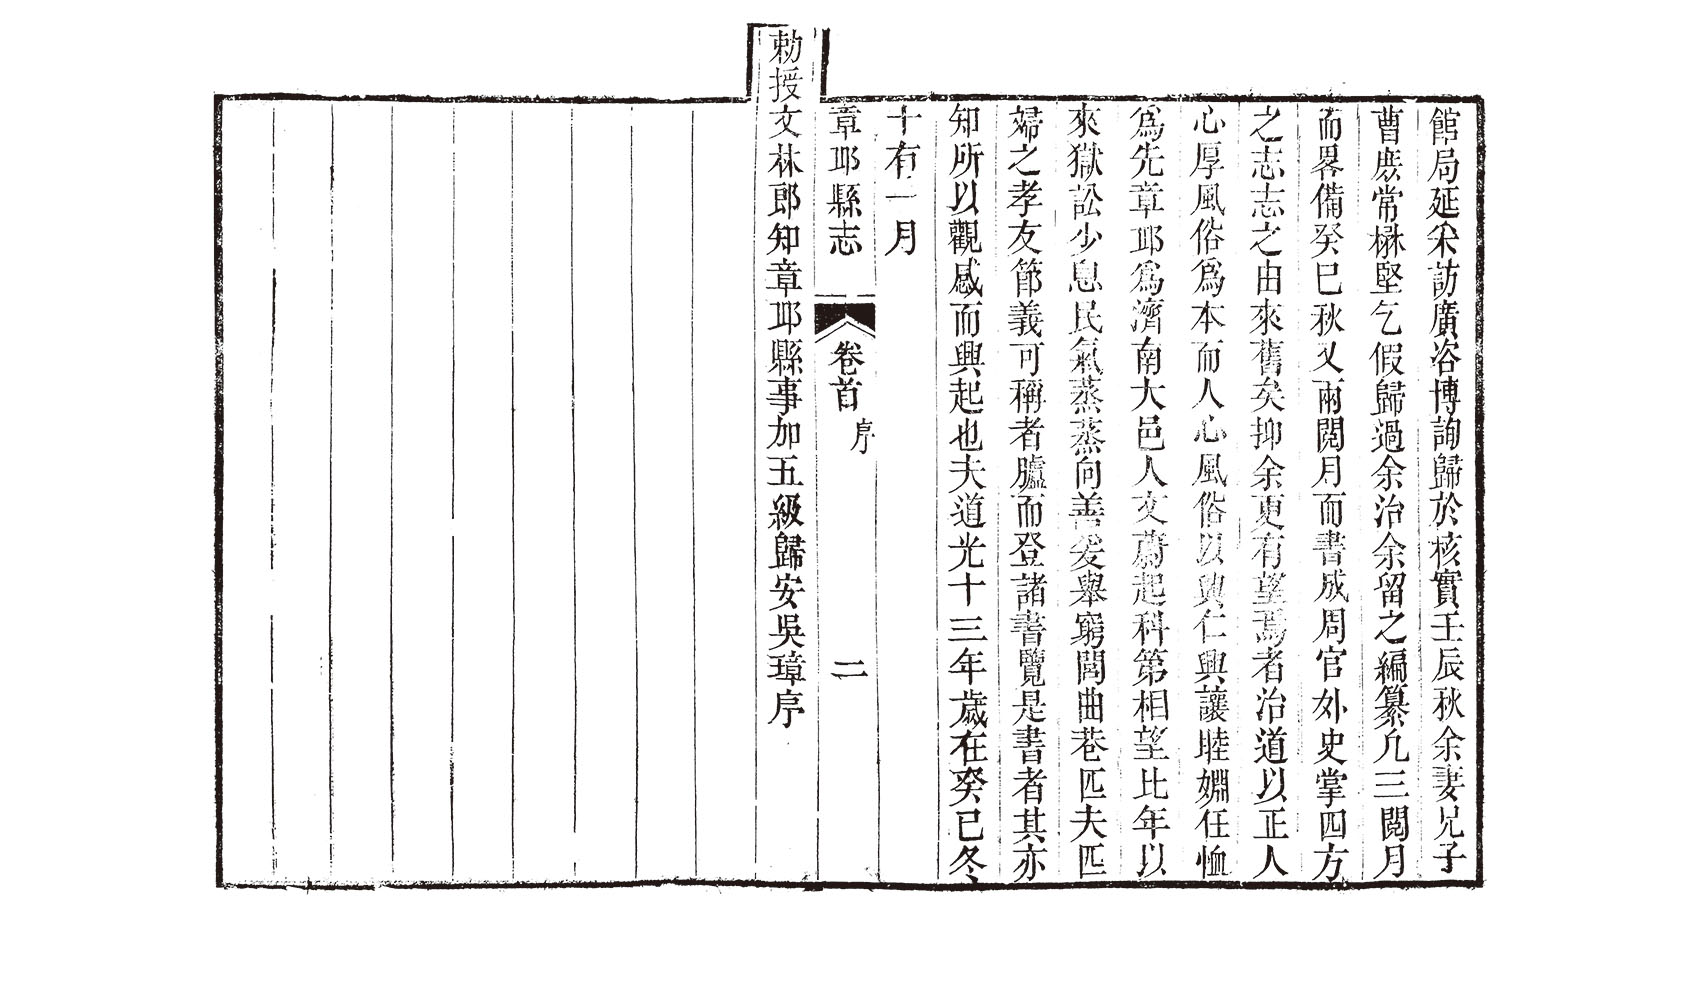 館局延采訪廣咨博詢歸於核實壬辰秋余妻兄子
曹庶常楙堅乞假歸過余治余留之編纂凡三閱月
而畧備癸巳秋又兩閱月而書成周官外史掌四方
之志志之由來舊矣抑余更有望焉者治道以正人
心厚風俗爲本而人心風俗以興仁興讓睦婣任恤
爲先章邱爲濟南大邑人文蔚起科第相望比年以
來獄訟少息民氣蒸蒸向善爰舉窮閭曲巷匹夫匹
婦之孝友節義可稱者臚而登諸書覽是書者其亦
知所以觀感而興起也夫道光十三年歲在癸巳冬
十有一月
章邱縣志
卷首
序
二
勅授文林郎知章邱縣事加五級歸安吳璋序